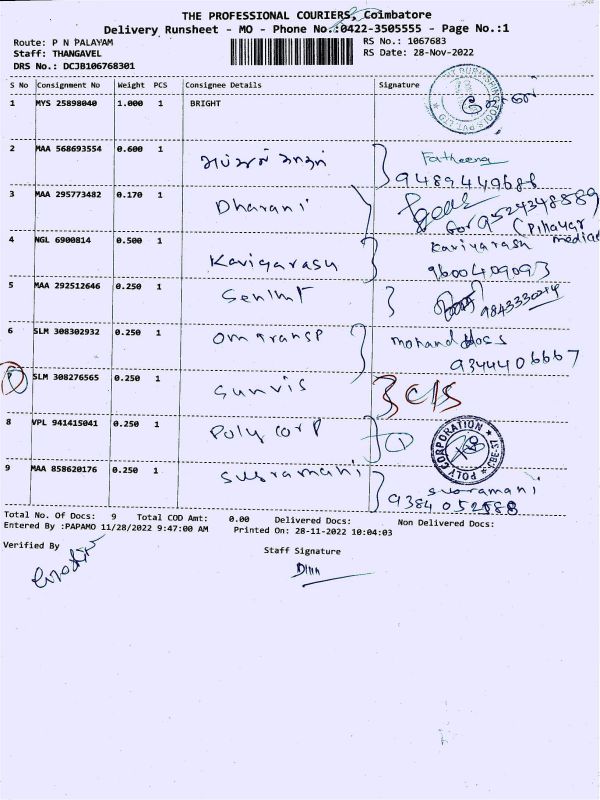 THE PROFESSIONAL COURIERS, Coimbatore
Delivery Runsheet - MO - Phone No.:0422-3505555 - Page No.:1
Route: P N PALAYAM
RS No.: 1067683
Staff: THANGAVEL
RS Date: 28-Nov-2022
DRS No.: DCJB106768301
S No Consignment No Weight PCS Consignee Details Signature
1 MYS 25898040 1.000 1 BRIGHT
2 MAA 568693554 0.600 1 Fatheena
9489449686
3 MAA 295773482 0.170 1 Dharani
for 9524348889
(Pillayar medical
4 NGL 6900814 0.500 1 Kaviyarasu Kaviyarasu
9600409093
5 MAA 292512646 0.250 1 Senthil 9843330214
6 SLM 308302932 0.250 1 Om transp mohand doss
9344406667
7 SLM 308276565 0.250 1 Sunvis C/S
8 VPL 941415041 0.250 1 Poly corp 1
POLY CORPORATION
9 MAA 858620176 0.250 1 Susramani Susramani
9384052888
Total No. Of Docs: 9 Total COD Amt: 0.00 Delivered Docs: Non Delivered Docs:
Entered By :PAPAMO 11/28/2022 9:47:00 AM Printed On: 28-11-2022 10:04:03
Verified By
Staff Signature